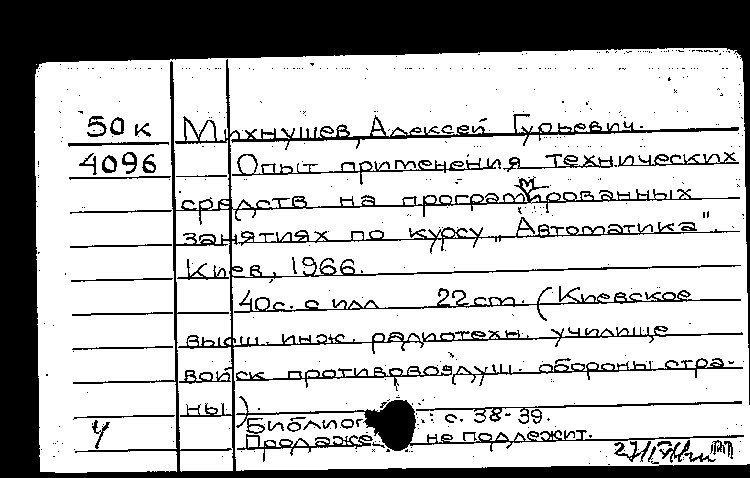 50к Михнушев, Алексей Гурьевич.
4096 Опыт применения технических
средств на программированных
занятиях по курсу "Автоматика".
Киев, 1966.
40с. с илл 22 cm. (Киевское
высш. инж. радиотехн. училище
войск противовоздуш. обороны стра-
ны).
Библиог : с. 38-39.
Ч Продаже не подлежит.